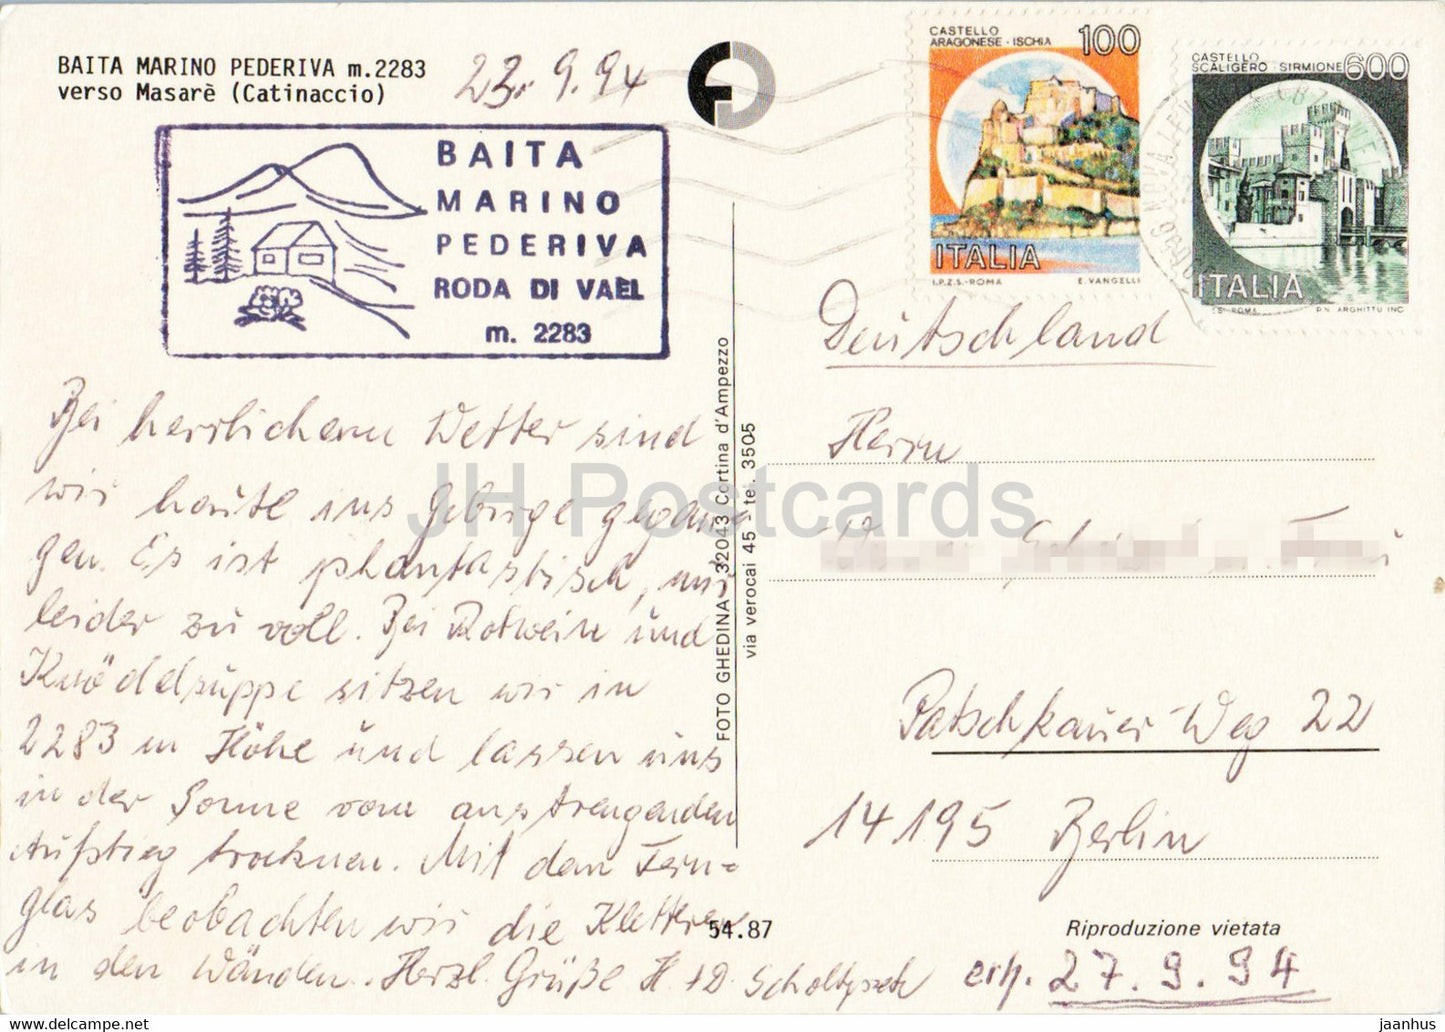 BAITA MARINO PEDERIVA m.2283
verso Masarè (Catinaccio)
23. 9. 94
BAITA
MARINO
PEDERIVA
RODA DI VAEL
m. 2283
CASTELLO
ARAGONESE - ISCHIA
100
ITALIA
I.P.Z.S.-ROMA E. VANGELLI
CASTELLO
SCALIGERO - SIRMIONE
600
ITALIA
ROMA P.N. ARGHITTU INC.
Bei herrlichem Wetter sind
wir heute ins Gebirge gegan
gen. Es ist phantastisch, nur
leider zu voll. Bei Rotwein und
Knödelsuppe sitzen wir in
2283 m Höhe und lassen uns
in der Sonne vom anstrengenden
Aufstieg trocknen. Mit dem Fern=
glas beobachten wir die Kletterer
in den Wänden. Herzl. Grüße H. + D. Scholtyssek
FOTO GHEDINA 32043 Cortina d'Ampezzo
via verocai 45 - te. 3505
54.87
Deutschland
Herrn
Patschkauer Weg 22
14195 Berlin
Riproduzione vietata
erh. 27.9.94
JH Postcards
jaanhus @ www.delcampe.net